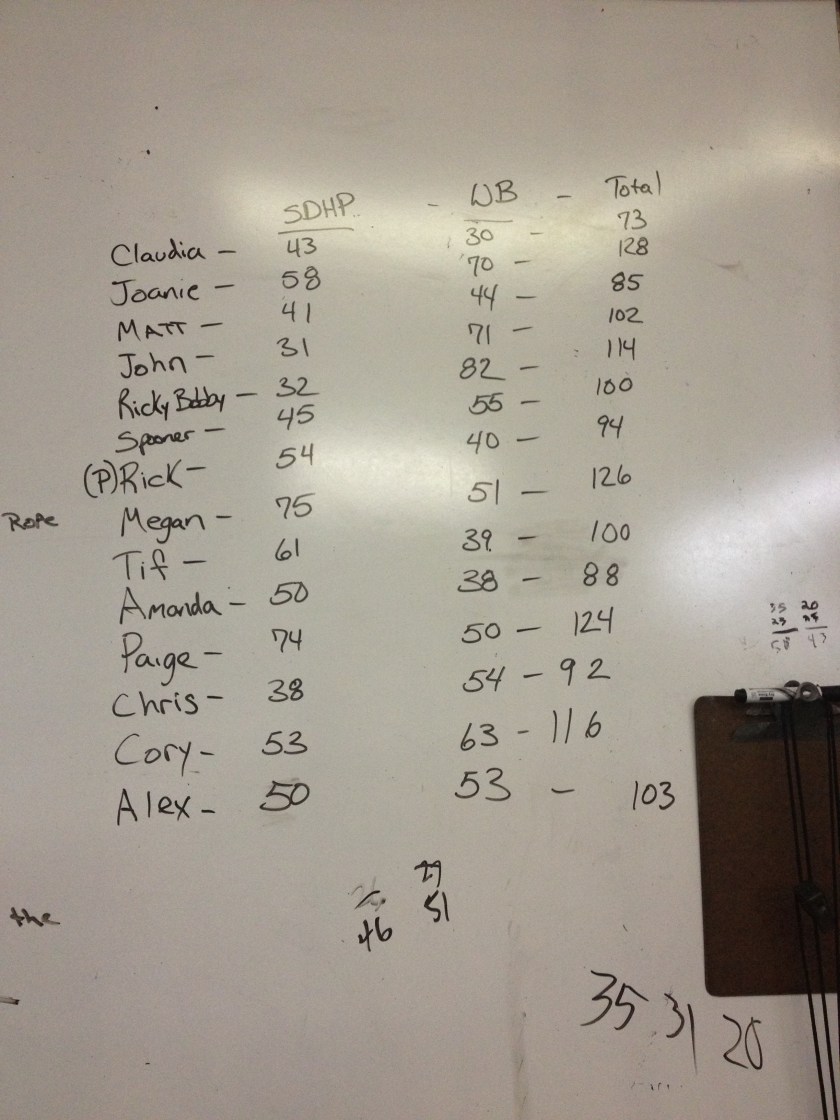 SDHP - WB - Total
Claudia - 43 30 - 73
Joanie - 58 70 - 128
MATT - 41 44 - 85
John - 31 71 - 102
Ricky Bobby - 32 82 - 114
Spooner - 45 55 - 100
(P)Rick - 54 40 - 94
Rope
Megan - 75 51 - 126
Tif - 61 39 - 100
Amanda - 50 38 - 88
Paige - 74 50 - 124
Chris - 38 54 - 92
Cory - 53 63 - 116
Alex - 50 53 - 103
35 20
23
58 43
the
46 51
35 31 20